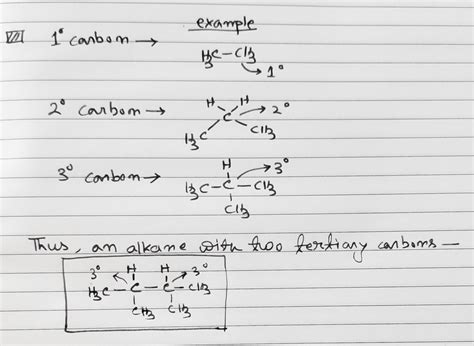 example
1° carbon → H₃C–CH₃
1°
2° carbon → H H
C → 2°
H₃C CH₃
3° carbon → H
3°
H₃C–C–CH₃
CH₃
Thus, an alkane with two tertiary carbons —
3° H H 3°
H₃C–C–C–CH₃
CH₃ CH₃